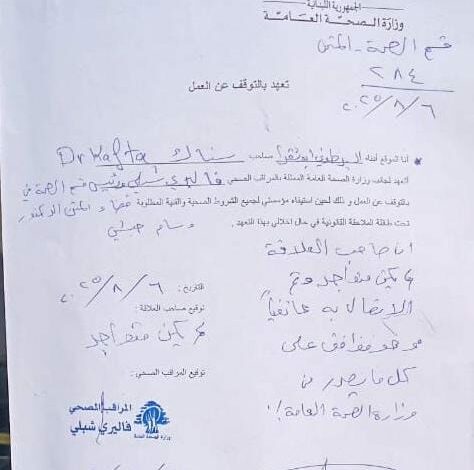 الجمهورية اللبنانية
وزارة الصحة العامة
قسم الصحة - المتن
٢٨٤
٢٠٢٥/٨/٦
تعهد بالتوقف عن العمل
أنا الموقع أدناه صاحب سناك Dr Kafta
أتعهد لجانب وزارة الصحة العامة الممثلة بالمراقب الصحي فاليري شبلي ورئيس قسم الصحة في
بالتوقف عن العمل و ذلك لحين استيفاء مؤسستي لجميع الشروط الصحية والفنية المطلوبة قضاء المتن الدكتور
تحت طائلة الملاحقة القانونية في حال اخلالي بهذا التعهد. وسام
ان صاحب العلاقة
لم يكن متواجد وتم
الاتصال به هاتفياً
وهو موافق على
كل ما يصدر من
وزارة الصحة العامة
التاريخ: ٢٠٢٥/٨/٦
توقيع صاحب العلاقة:
لم يكن متواجد
توقيع المراقب الصحي:
المراقب الصحي
فاليري شبلي
وزارة الصحة العامة